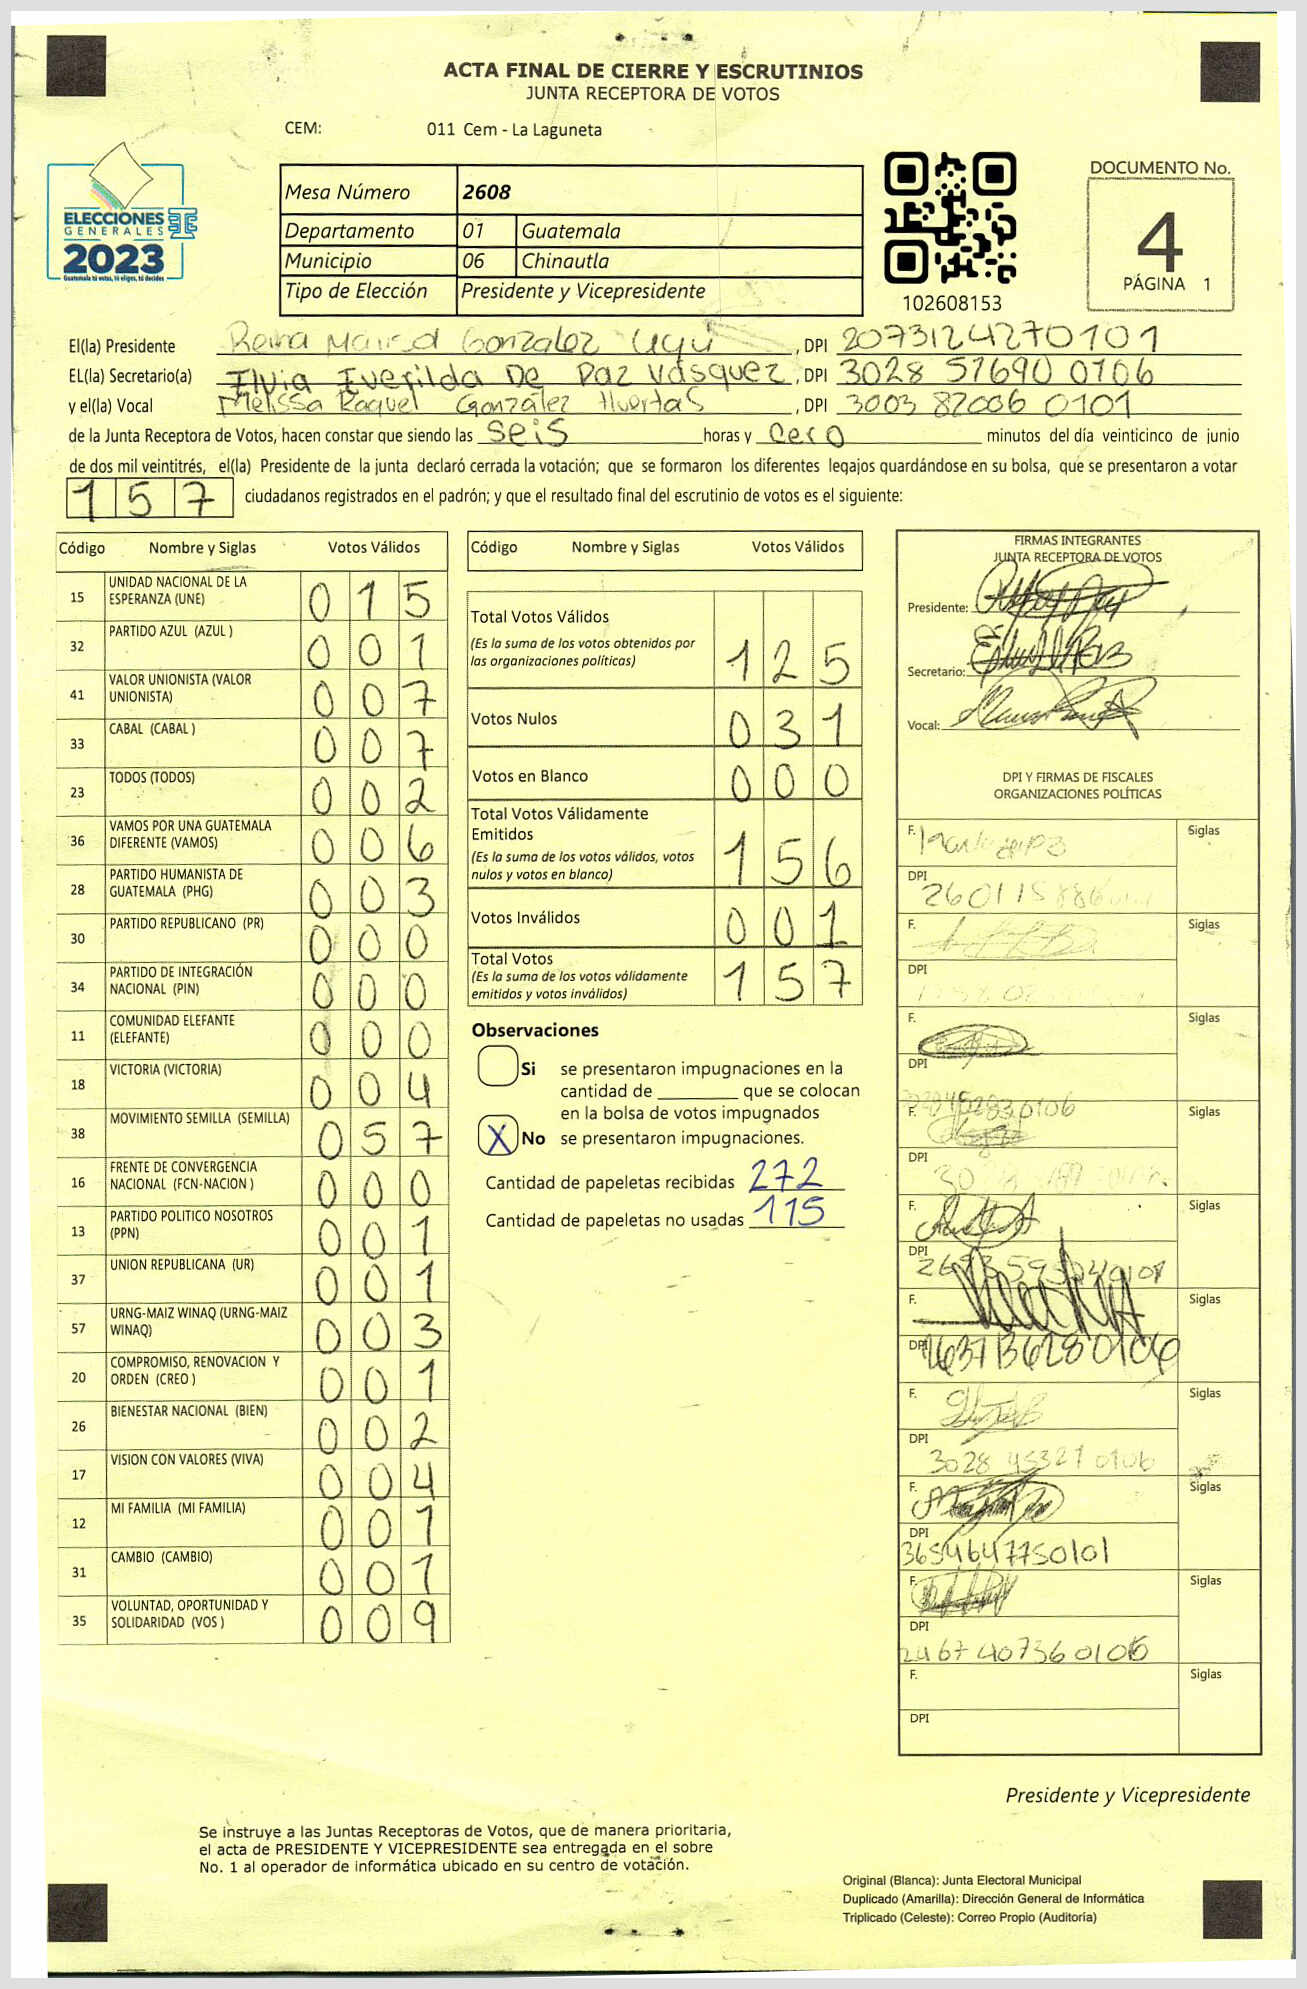 ACTA FINAL DE CIERRE Y ESCRUTINIOS
JUNTA RECEPTORA DE VOTOS
CEM: 011 Cem - La Laguneta
ELECCIONES
GENERALES
2023
Guatemala tú votas, tú eliges, tú decides
Mesa Número 2608
Departamento 01 Guatemala
Municipio 06 Chinautla
Tipo de Elección Presidente y Vicepresidente
102608153
DOCUMENTO No.
4
PÁGINA 1
El(la) Presidente Reina Marisol Gonzalez , DPI 2073124270101
EL(la) Secretario(a) Ilvia Everilda De Paz Vásquez, DPI 3028 57690 0106
y el(la) Vocal Melissa Raquel González Huertas , DPI 3003 82006 0101
de la Junta Receptora de Votos, hacen constar que siendo las seis horas y cero minutos del día veinticinco de junio
de dos mil veintitrés, el(la) Presidente de la junta declaró cerrada la votación; que se formaron los diferentes legajos quardándose en su bolsa, que se presentaron a votar
157 ciudadanos registrados en el padrón; y que el resultado final del escrutinio de votos es el siguiente:
Código Nombre y Siglas Votos Válidos
15 UNIDAD NACIONAL DE LA ESPERANZA (UNE) 015
32 PARTIDO AZUL (AZUL ) 001
41 VALOR UNIONISTA (VALOR UNIONISTA) 007
33 CABAL (CABAL ) 007
23 TODOS (TODOS) 002
36 VAMOS POR UNA GUATEMALA DIFERENTE (VAMOS) 006
28 PARTIDO HUMANISTA DE GUATEMALA (PHG) 003
30 PARTIDO REPUBLICANO (PR) 000
34 PARTIDO DE INTEGRACIÓN NACIONAL (PIN) 000
11 COMUNIDAD ELEFANTE (ELEFANTE) 000
18 VICTORIA (VICTORIA) 004
38 MOVIMIENTO SEMILLA (SEMILLA) 057
16 FRENTE DE CONVERGENCIA NACIONAL (FCN-NACION ) 000
13 PARTIDO POLITICO NOSOTROS (PPN) 001
37 UNION REPUBLICANA (UR) 001
57 URNG-MAIZ WINAQ (URNG-MAIZ WINAQ) 003
20 COMPROMISO, RENOVACION Y ORDEN (CREO ) 001
26 BIENESTAR NACIONAL (BIEN) 002
17 VISION CON VALORES (VIVA) 004
12 MI FAMILIA (MI FAMILIA) 001
31 CAMBIO (CAMBIO) 001
35 VOLUNTAD, OPORTUNIDAD Y SOLIDARIDAD (VOS ) 009
Código Nombre y Siglas Votos Válidos
Total Votos Válidos 125
(Es la suma de los votos obtenidos por
las organizaciones políticas)
Votos Nulos 031
Votos en Blanco 000
Total Votos Válidamente
Emitidos 156
(Es la suma de los votos válidos, votos
nulos y votos en blanco)
Votos Inválidos 001
Total Votos 157
(Es la suma de los votos válidamente
emitidos y votos inválidos)
Observaciones
Si se presentaron impugnaciones en la
cantidad de ________ que se colocan
en la bolsa de votos impugnados
X No se presentaron impugnaciones.
Cantidad de papeletas recibidas 272
Cantidad de papeletas no usadas 115
FIRMAS INTEGRANTES
JUNTA RECEPTORA DE VOTOS
Presidente:
Secretario:
Vocal:
DPI Y FIRMAS DE FISCALES
ORGANIZACIONES POLÍTICAS
F. Siglas
DPI
F. Siglas
DPI
F. Siglas
DPI
F. Siglas
DPI
F. Siglas
DPI
F. Siglas
DPI 2637136280106
F. Siglas
DPI 3028 45327 0106
F. Siglas
DPI 3654647750101
F. Siglas
DPI 2467 40736 0106
F. Siglas
DPI
Presidente y Vicepresidente
Se instruye a las Juntas Receptoras de Votos, que de manera prioritaria,
el acta de PRESIDENTE Y VICEPRESIDENTE sea entregada en el sobre
No. 1 al operador de informática ubicado en su centro de votación.
Original (Blanca): Junta Electoral Municipal
Duplicado (Amarilla): Dirección General de Informática
Triplicado (Celeste): Correo Propio (Auditoría)